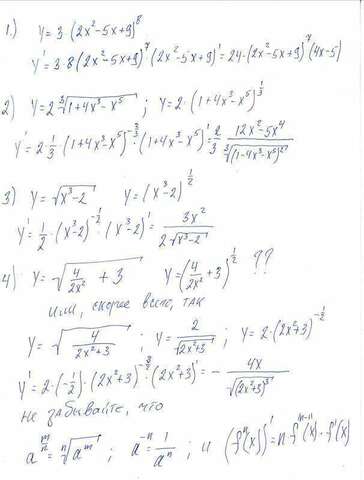 1.) y = 3·(2x²-5x+9)⁸
y' = 3·8(2x²-5x+9)⁷·(2x²-5x+9)' = 24·(2x²-5x+9)⁷(4x-5)
2) y = 2∛(1+4x³-x⁵) ; y = 2·(1+4x³-x⁵)^(1/3)
y' = 2·1/3·(1+4x³-x⁵)^(-2/3)·(1+4x³-x⁵)' = 2/3 (12x²-5x⁴)/∛((1+4x³-x⁵)²)
3) y = √(x³-2) y = (x³-2)^(1/2)
y' = 1/2·(x³-2)^(-1/2)·(x³-2)' = 3x²/(2√(x³-2))
4) y = √(4/(2x²) + 3) y = (4/(2x²) + 3)^(1/2) ??
или, скорее всего, так
y = √(4/(2x²+3)) ; y = 2/√(2x²+3) ; y = 2·(2x²+3)^(-1/2)
y' = 2·(-1/2)·(2x²+3)^(-3/2)·(2x²+3)' = - 4x/√((2x²+3)³)
не забывайте, что
a^(m/n) = ⁿ√(aᵐ) ; a⁻ⁿ = 1/aⁿ ; и (fⁿ(x))' = n·fⁿ⁻¹(x)·f'(x)